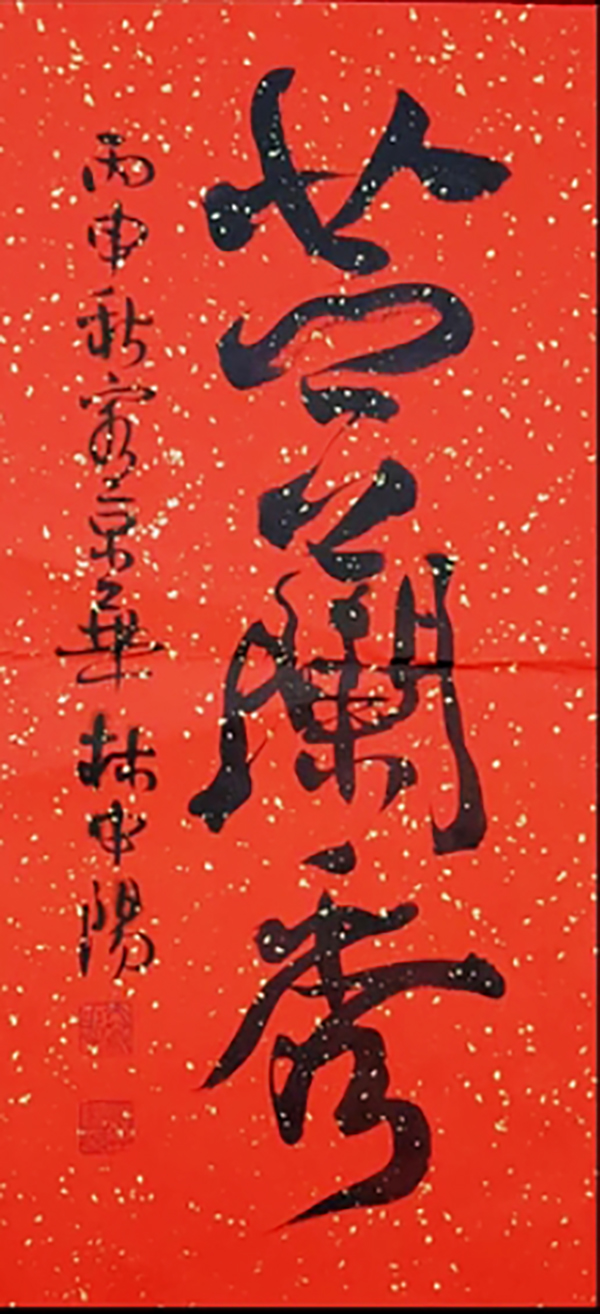 芝蘭秀
丙申秋客京華 林中陽